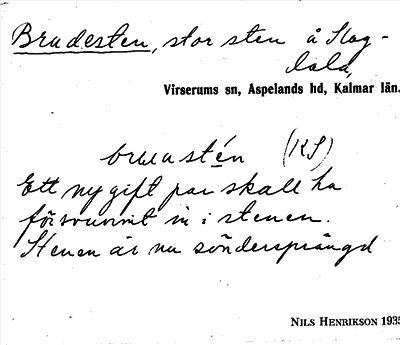 Brudesten, stor sten å Slag-
lala,
Virserums sn, Aspelands hd, Kalmar län.
(KS)
Ett nygift par skall ha
försvunnit in i stenen.
Stenen är nu söndersprängd
NILS HENRIKSON 1935